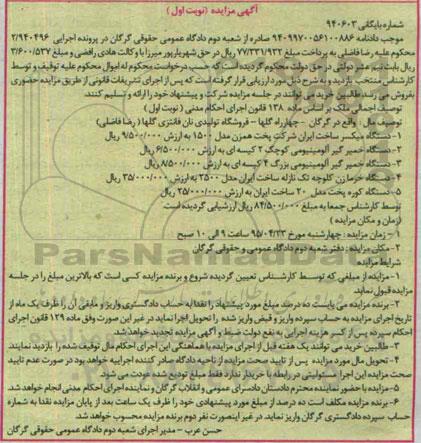 آگهی مزایده (نوبت اول)
شماره بایگانی ۹۴۰۶۰۳
بموجب دادنامه ۹۴۰۹۹۷۰۰۵۶۱۰۰۸۸۶ صادره از شعبه دوم دادگاه عمومی حقوقی گرگان در پرونده اجرایی ۲/۹۴۰۴۹۶
محکوم علیه رضا فاضلی به پرداخت مبلغ ۷۷/۳۳۱/۹۳۲ ریال در حق شهریارپور میرزا با وکالت هادی رافضی و مبلغ ۳/۶۰۰/۵۳۷
ریال بابت نیم عشر دولتی در حق دولت محکوم گردیده است که حسب درخواست محکوم له اموال محکوم علیه توقیف و توسط
کارشناس منتخب بازدید و به شرح ذیل مورد ارزیابی قرار گرفته است که پس از اجرای تشریفات قانونی از طریق مزایده حضوری
بفروش می رسد. طالبین خرید می توانند در جلسه مزایده شرکت و پیشنهاد خود را ارائه و تسلیم کنند.
توصیف اجمالی ملک بر اساس ماده ۱۳۸ قانون اجرای احکام مدنی (نوبت اول)
توصیف مال: واقع در گرگان - چهارراه گلها - فروشگاه تولیدی نان فانتزی گلها (رضا فاضلی)
۱- دستگاه میکسر ساخت ایران شرکت پخت همزن مدل ۱۵۰۰ به ارزش ۹/۵۰۰/۰۰۰ ریال
۲- دستگاه خمیر گیر آلومینیومی کوچک ۲ کیسه ای به ارزش ۶/۵۰۰/۰۰۰ ریال
۳- دستگاه خمیر گیر آلومینیومی بزرگ ۴ کیسه ای به ارزش ۸/۵۰۰/۰۰۰ ریال
۴- دستگاه خرما زن کلوچه تک نازله ساخت ایران مدل ۳۵۰۰ به ارزش ۳۵/۰۰۰/۰۰۰ ریال
۵- دستگاه کوره پخت مدل ۲۰ ساخت ایران به ارزش ۲۵/۰۰۰/۰۰۰ ریال
توسط کارشناس جمعا به مبلغ ۸۴/۵۰۰/۰۰۰ ریال ارزشیابی گردیده است.
(زمان و مکان مزایده)
۱- زمان مزایده: چهارشنبه مورخ ۹۵/۰۴/۲۳ ساعت ۹ الی ۱۰ صبح
۲- مکان مزایده: دفتر شعبه دوم دادگاه عمومی و حقوقی گرگان
شرایط مزایده
۱- مزایده از مبلغی که توسط کارشناس تعیین گردیده شروع و برنده مزایده کسی است که بالاترین مبلغ را در جلسه
مزایده قبول نماید.
۲- برنده مزایده می بایست ده درصد مبلغ مورد پیشنهاد را نقدا به حساب دادگستری واریز و مابقی آن را ظرف یک ماه از
تاریخ اجرای مزایده به حساب سپرده واریز و فیش واریز شده را تحویل اجرا نماید در غیر این صورت وفق ماده ۱۲۹ قانون اجرای
احکام سپرده پس از کسر هزینه اجرایی به نفع دولت ضبط و آگهی مزایده تجدید خواهد شد.
۳- طالبین خرید می توانند یک هفته قبل از اجرای مزایده با هماهنگی این اجرای احکام مال توقیف شده را بازدید نمایند.
۴- تحویل مال مورد مزایده پس از تایید صحت مزایده از ناحیه دادگاه صادر کننده اجراییه خواهد بود در صورت عدم تایید
صحت مزایده این اجرا مسئولیتی در رابطه با خریدار ندارد فقط مبلغ تودیع شده عودت می شود
۵- مزایده با حضور نماینده محترم دادستان دادسرای عمومی و انقلاب گرگان و نماینده اجرای احکام مدنی انجام خواهد شد.
۶- برنده مزایده مکلف است ده درصد از مبلغ مورد پیشنهادی خود را ظرف یک ساعت بعد از پایان مزایده نقدا به شماره
حساب سپرده دادگستری گرگان واریز نماید. در غیر اینصورت نفر دوم برنده مزایده محسوب خواهد شد.
حسن عرب - مدیر اجرای شعبه دوم دادگاه عمومی حقوقی گرگان
ParsNamadData